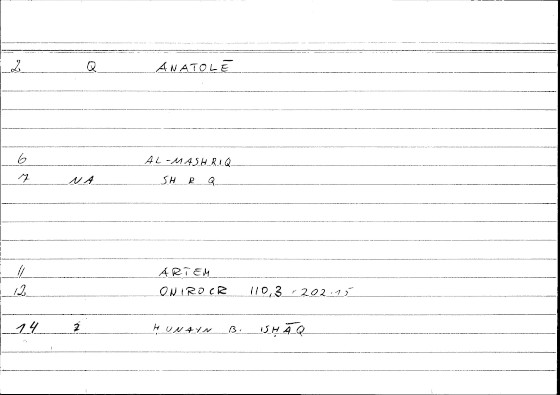 2 Q ANATOLĒ
6 AL-MASHRIQ
7 NA SH R Q
11 ARTEM
12 ONIROCR 110,3 - 202.15
14 2 ḤUNAYN B. ISḤĀQ